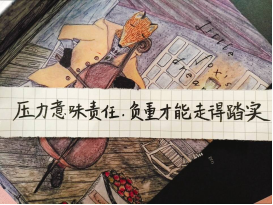 Little
Fox's
dream
压力意味责任.负重才能走得踏实